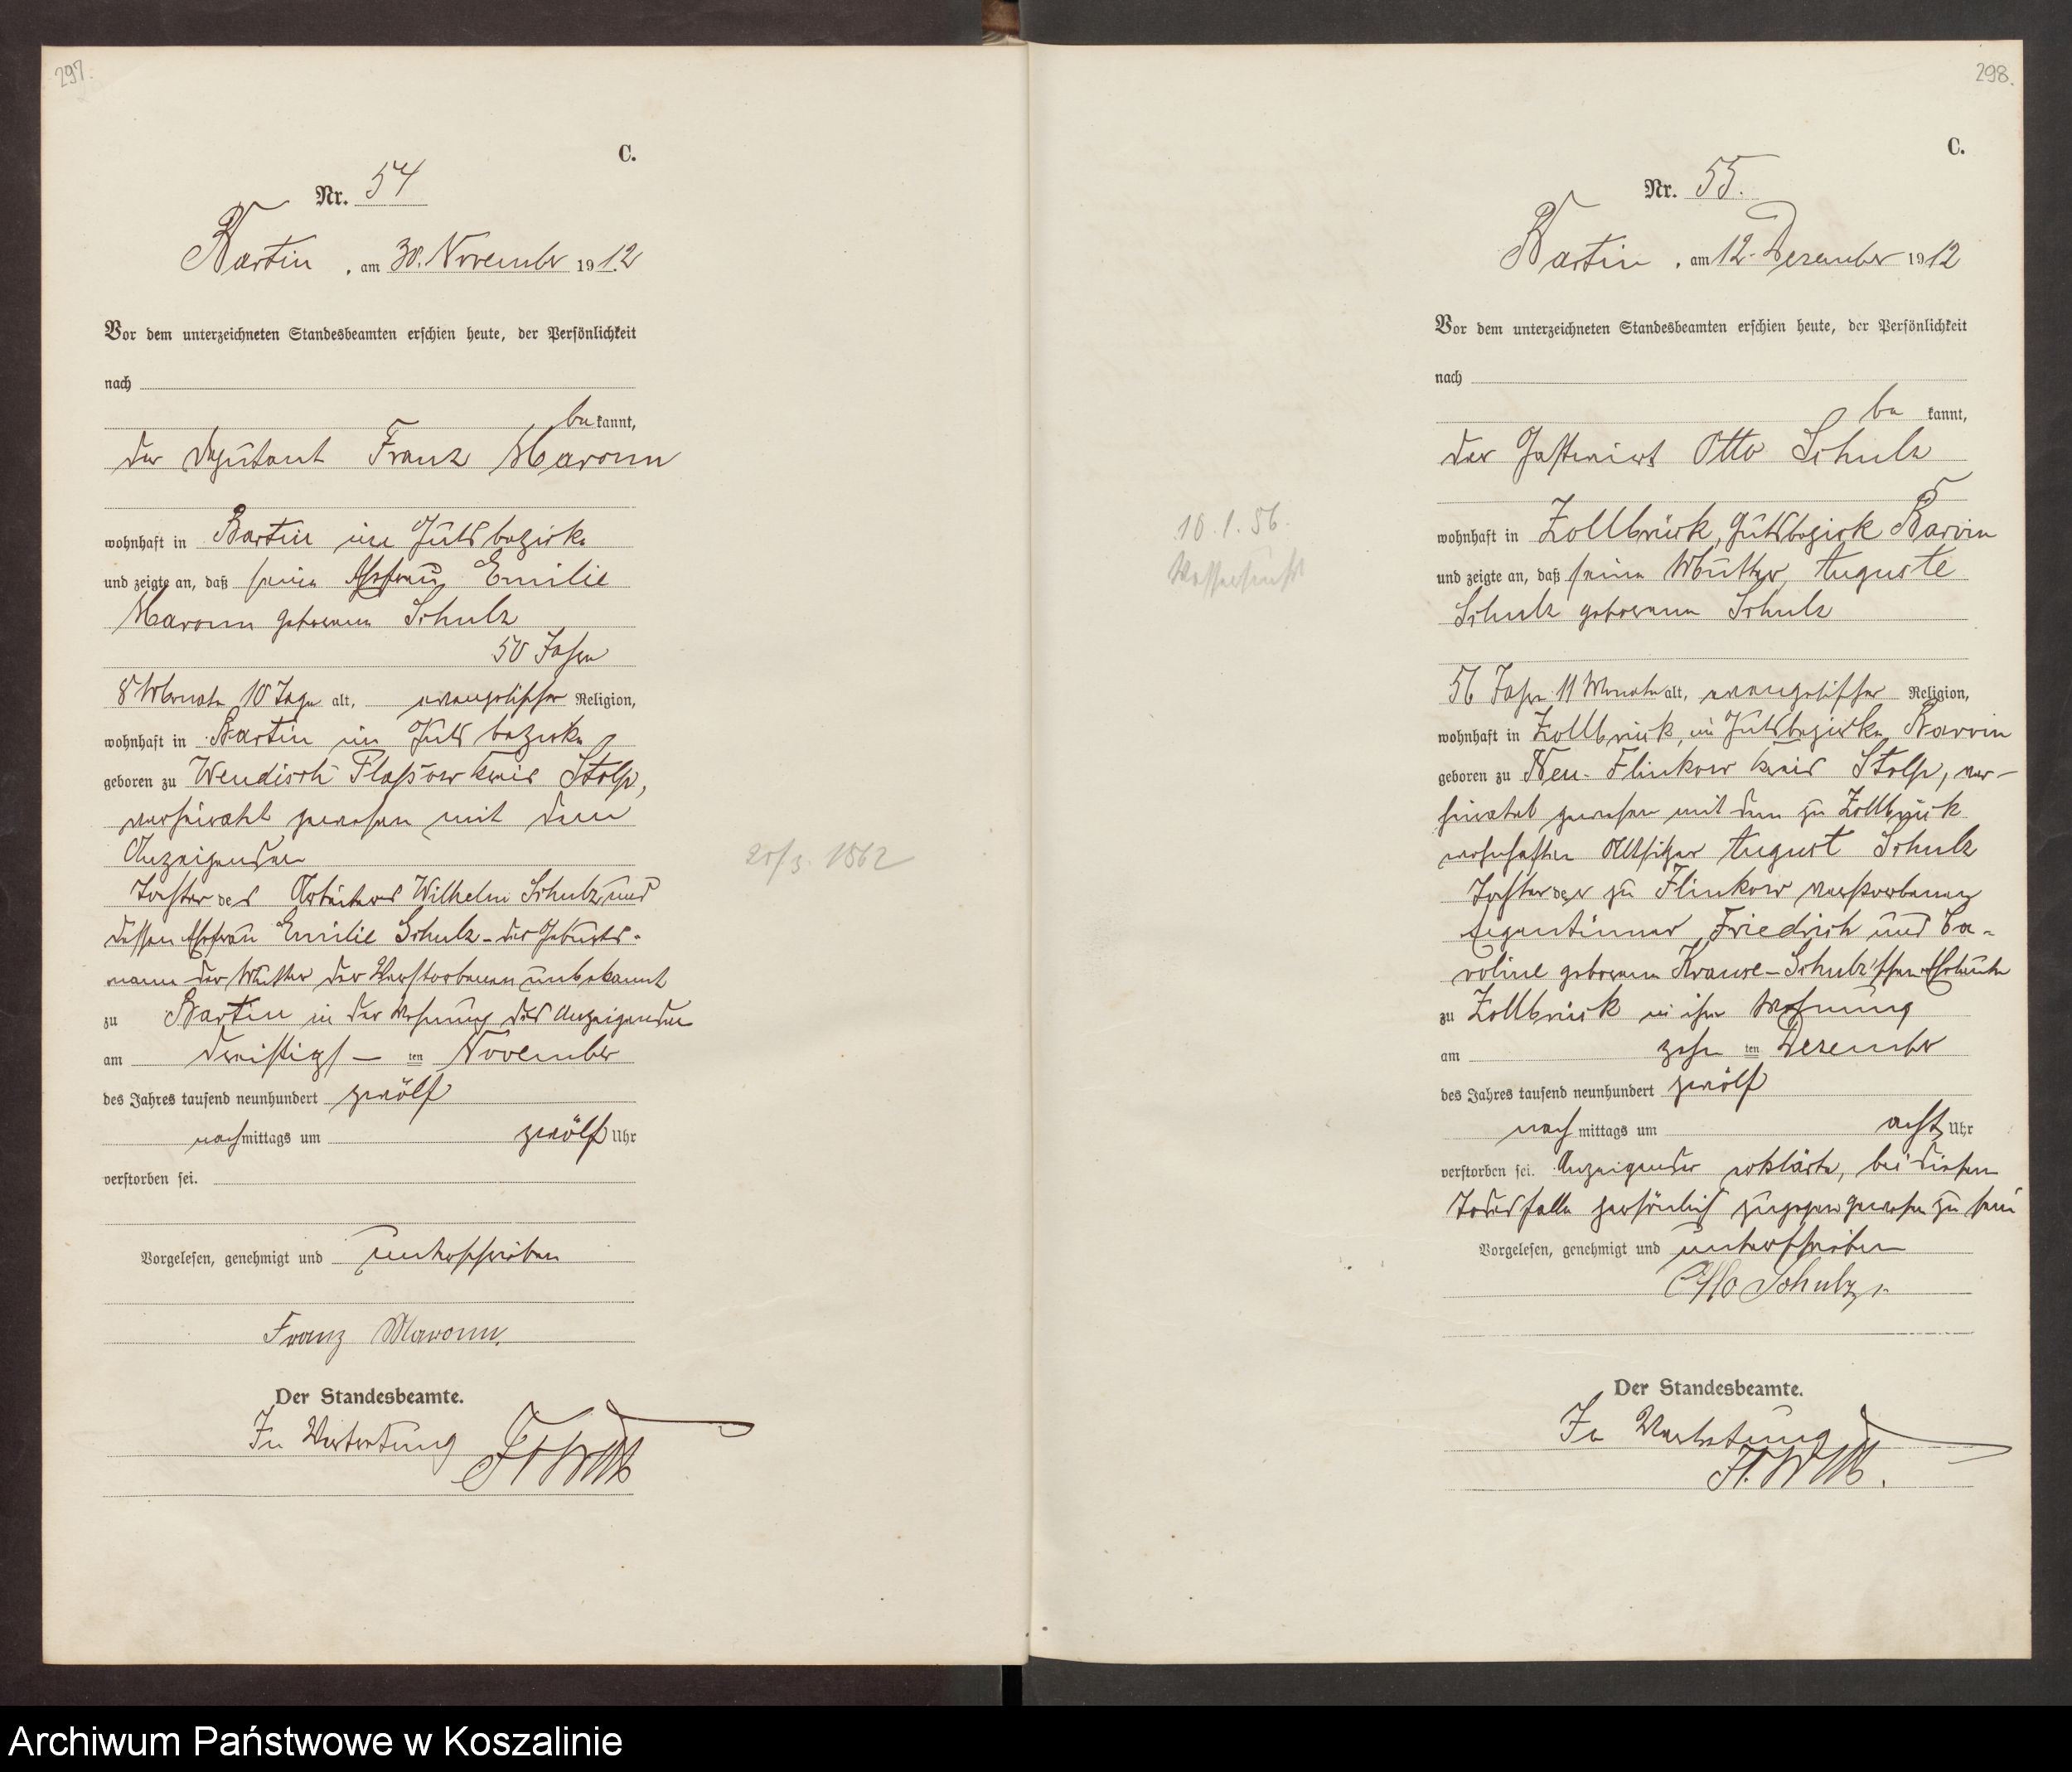 297.
C.
Nr. 54
Bartin, am 30. November 1912
Vor dem unterzeichneten Standesbeamten erschien heute, der Persönlichkeit
nach
bekannt,
der Deputant Franz Maronn
wohnhaft in Bartin im Gutsbezirke
und zeigte an, daß seine Ehefrau Emilie
Maronn geborenen Schulz
50 Jahre
8 Monate 10 Tage alt, evangelischer Religion,
wohnhaft in Bartin im Gutsbezirke
geboren zu Wendisch Plassow Kreis Stolp,
verheirathet gewesen mit dem
Anzeigenden
Tochter des Arbeiters Wilhelm Schulz und
dessen Ehefrau Emilie Schulz - der Geburts-
name der Mutter der Verstorbenen unbekannt
zu Bartin in der Wohnung des Anzeigenden
am dreißigs — ten November
des Jahres tausend neunhundert zwölf
nachmittags um zwölf Uhr
verstorben sei.
Vorgelesen, genehmigt und unterschrieben
Franz Maronn.
Der Standesbeamte.
In Vertretung
20/3. 1862
298.
C.
Nr. 55.
Bartin, am 12. Dezember 1912
Vor dem unterzeichneten Standesbeamten erschien heute, der Persönlichkeit
nach
bekannt,
der Gastwirt Otto Schulz
wohnhaft in Zollbrück, Gutsbezirk Barvin
und zeigte an, daß seine Mutter, Auguste
Schulz geborenen Schulz
56 Jahre 11 Monate alt, evangelischer Religion,
wohnhaft in Zollbrück, im Gutsbezirke Barvin
geboren zu Neu-Flinkow Kreis Stolp, ver-
heiratet gewesen mit dem zu Zollbrück
wohnhaften Altsitzer August Schulz
Tochter der zu Flinkow verstorbenen
Eigentümer Friedrich und Ca-
roline geborenen Krause-Schulz'schen Eheleute
zu Zollbrück in ihrer Wohnung
am zehn ten Dezember
des Jahres tausend neunhundert zwölf
nachmittags um acht Uhr
verstorben sei. Anzeigender erklärte, bei diesem
Todesfalle persönlich zugegen gewesen zu sein
Vorgelesen, genehmigt und unterschrieben
Otto Schulz
Der Standesbeamte.
In Vertretung
10.1.56.
Wassersucht
Archiwum Państwowe w Koszalinie